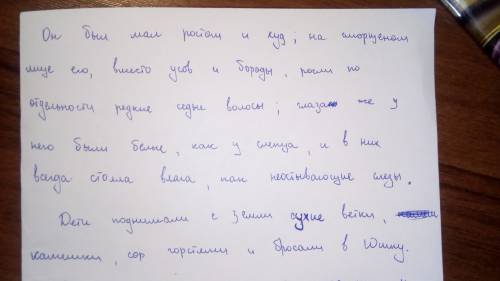 Он был мал ростом и худ; на сморщеном
лице его, вместо усов и бороды, росли по
отдельности редкие седые волосы; глаза же у
него были белые, как у слепца, и в них
всегда стояла влага, как неостывающие слезы.
Дети поднимали с земли сухие ветки,
камешки, сор горстями и бросали в Юшку.